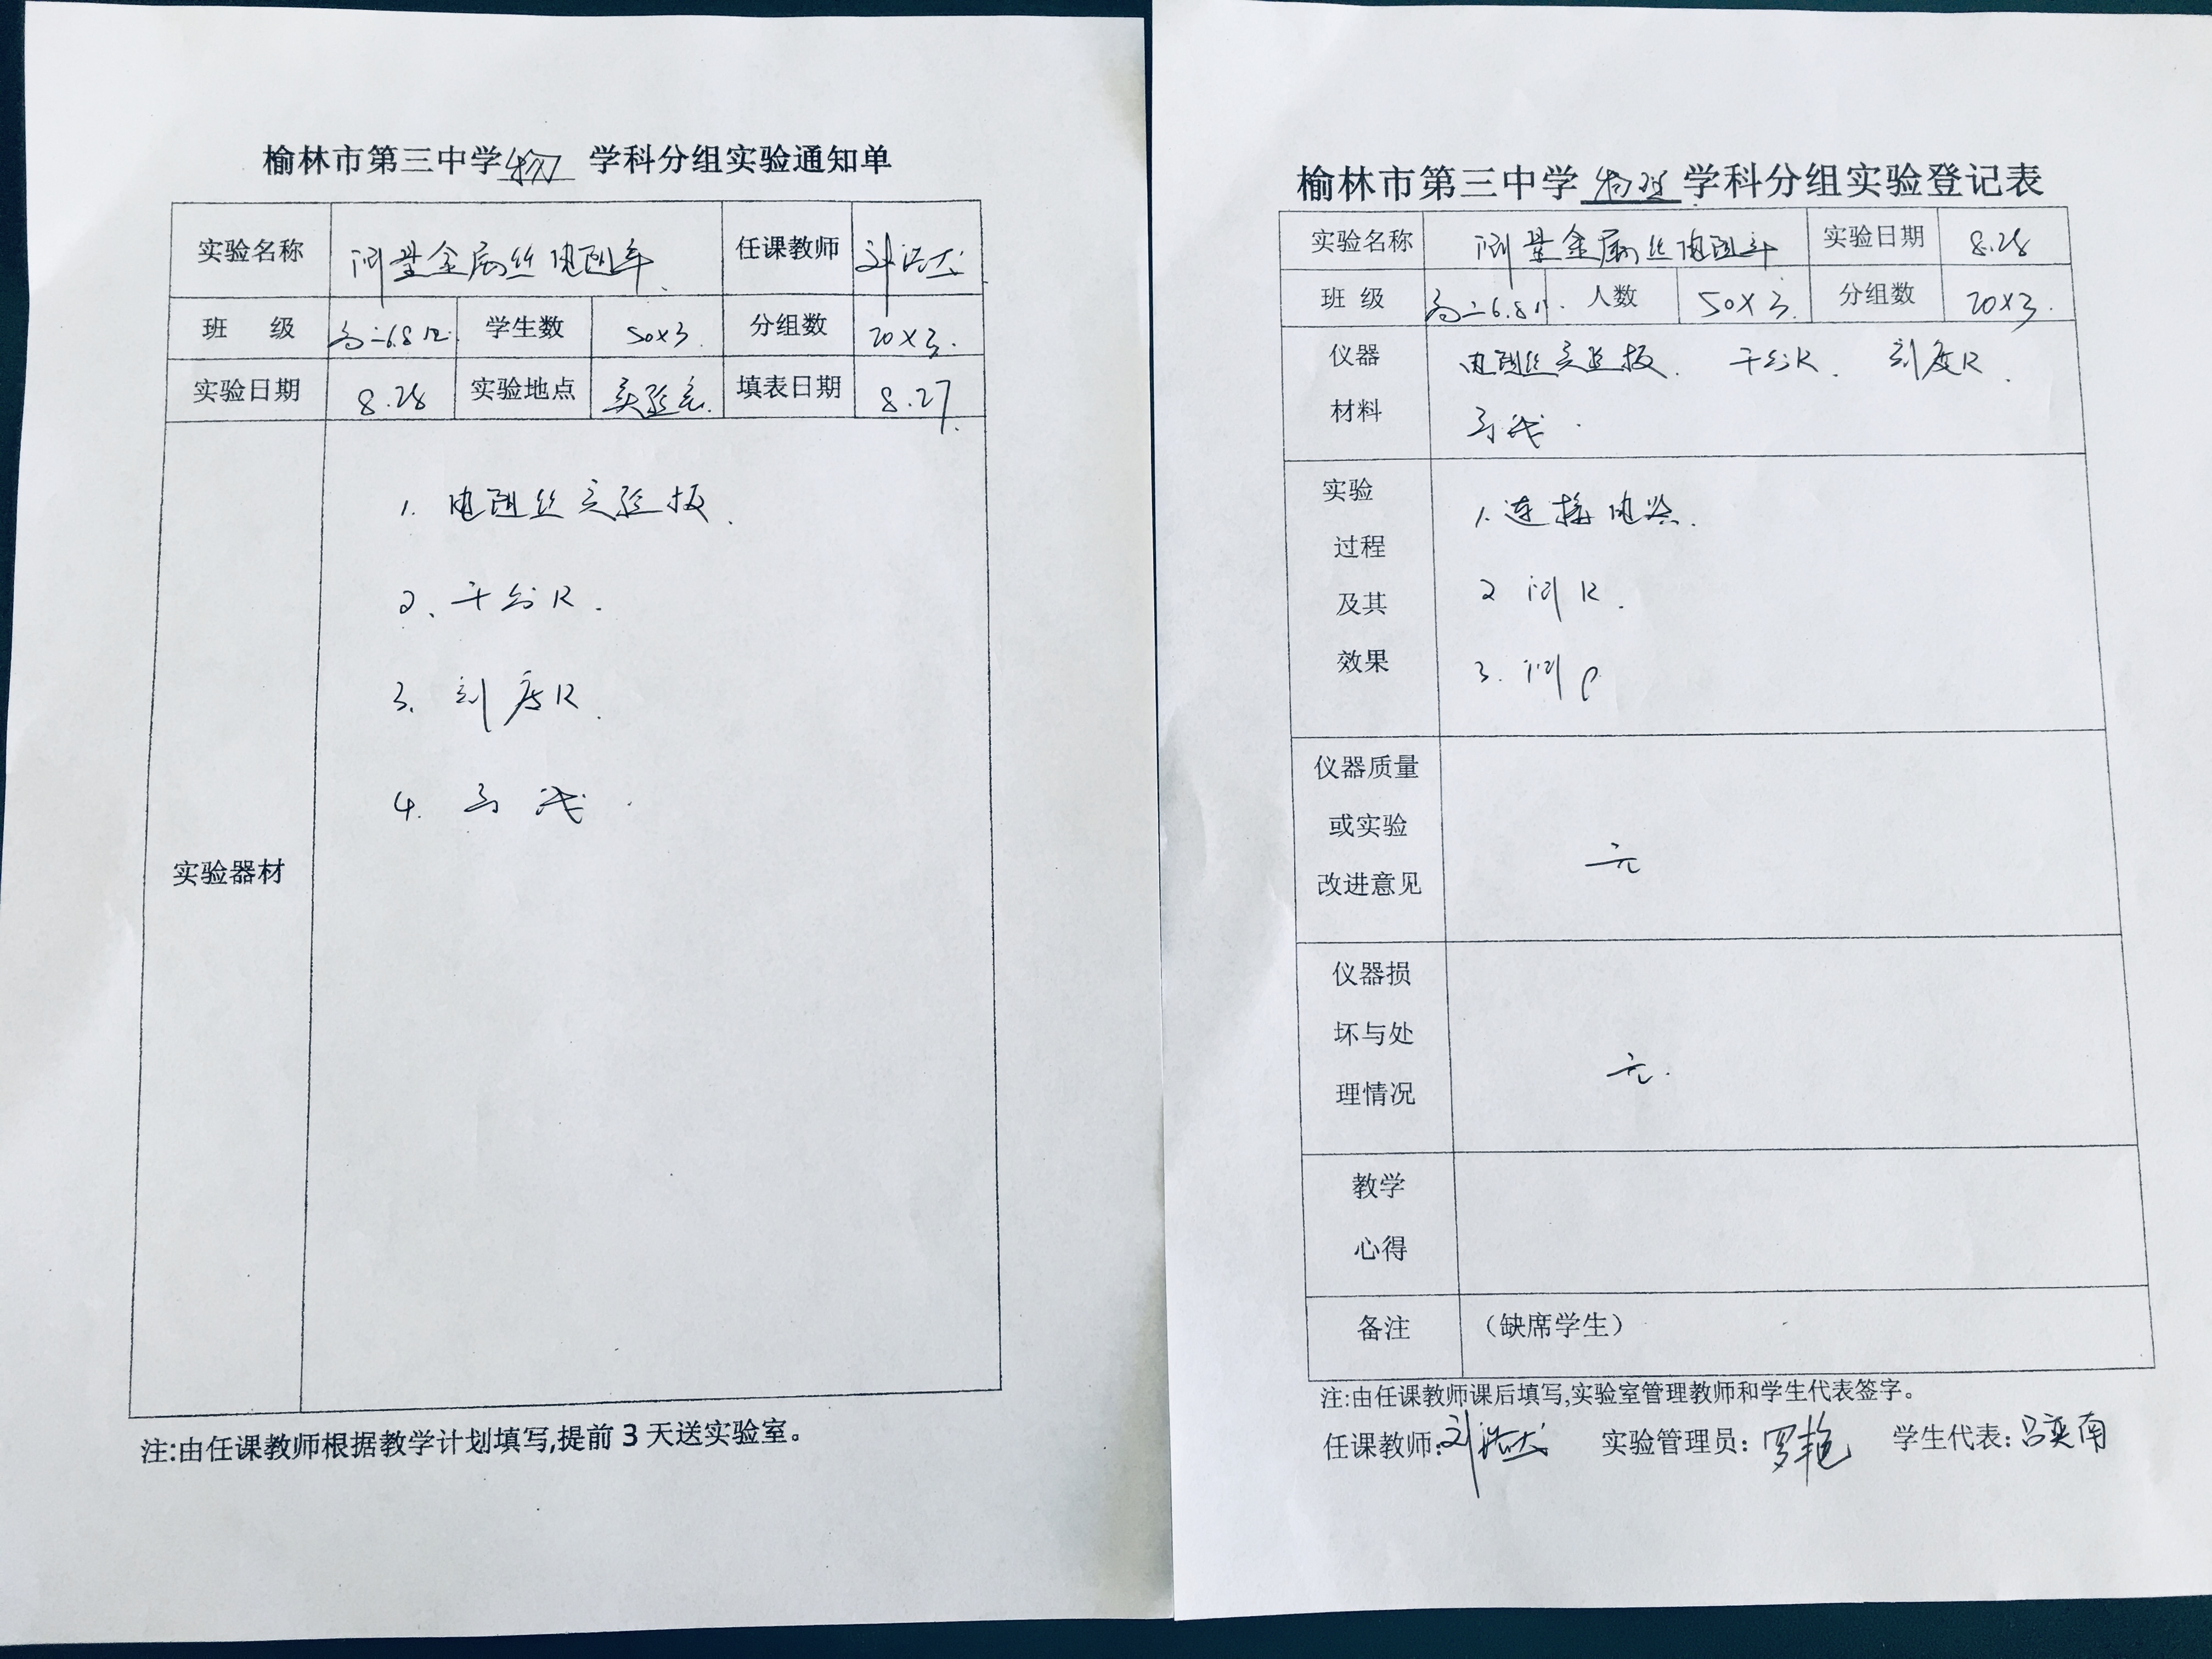 榆林市第三中学物 学科分组实验通知单
实验名称 测量金属丝电阻率. 任课教师
班 级 学生数 50×3. 分组数 20×3.
实验日期 8.28 实验地点 实验室. 填表日期 8.27.
实验器材
1. 电阻丝实验板.
2. 千分尺.
3. 刻度尺.
4. 导线.
注:由任课教师根据教学计划填写,提前3天送实验室。
榆林市第三中学物理学科分组实验登记表
实验名称 测量金属丝电阻率 实验日期 8.28
班 级 人数 50×3. 分组数 20×3.
仪器 电阻丝实验板. 千分尺. 刻度尺.
材料 导线.
实验 1. 连接电路.
过程
及其 2 测R.
效果 3. 测ρ
仪器质量
或实验 无
改进意见
仪器损
坏与处 无.
理情况
教学
心得
备注 （缺席学生）
注:由任课教师课后填写,实验室管理教师和学生代表签字。
任课教师: 实验管理员: 罗艳 学生代表: 吕奕南